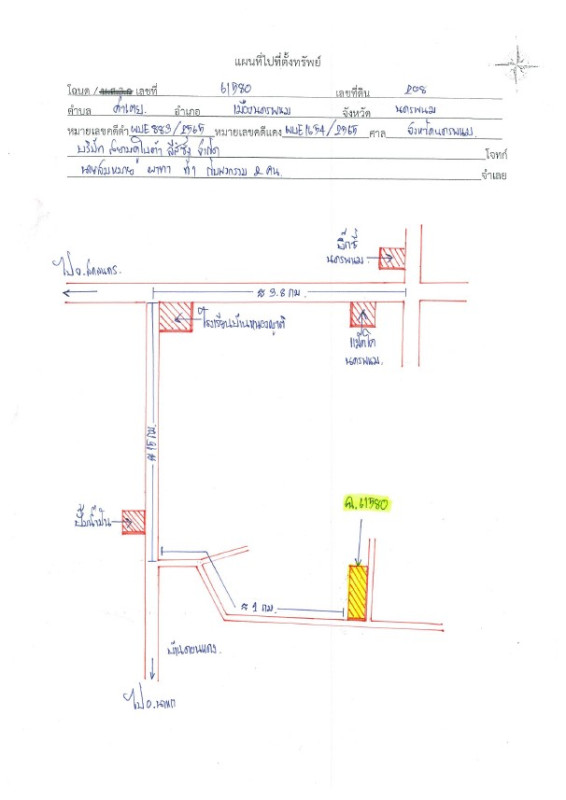 แผนที่ไปที่ตั้งทรัพย์
โฉนด / เลขที่ 61380 เลขที่ดิน 208
ตำบล คำเตย อำเภอ เมืองนครพนม จังหวัด นครพนม
หมายเลขคดีดำ ผบE 883/2565 หมายเลขคดีแดง ผบE1654/2565 ศาล จังหวัดนครพนม
บริษัท ลีสซิ่ง จำกัด โจทก์
ที่ 1 กับพวกรวม 2 คน จำเลย
บิ๊กซี
นครพนม
ไป จ.สกลนคร
≈ 3.8 กม.
โรงเรียนบ้านหนองญาติ
แม็คโค
นครพนม
≈ 15 กม.
ฉ.61380
ปั๊มน้ำมัน
≈ 1 กม.
บ้านดอนแดง
ไป อ.นาแก